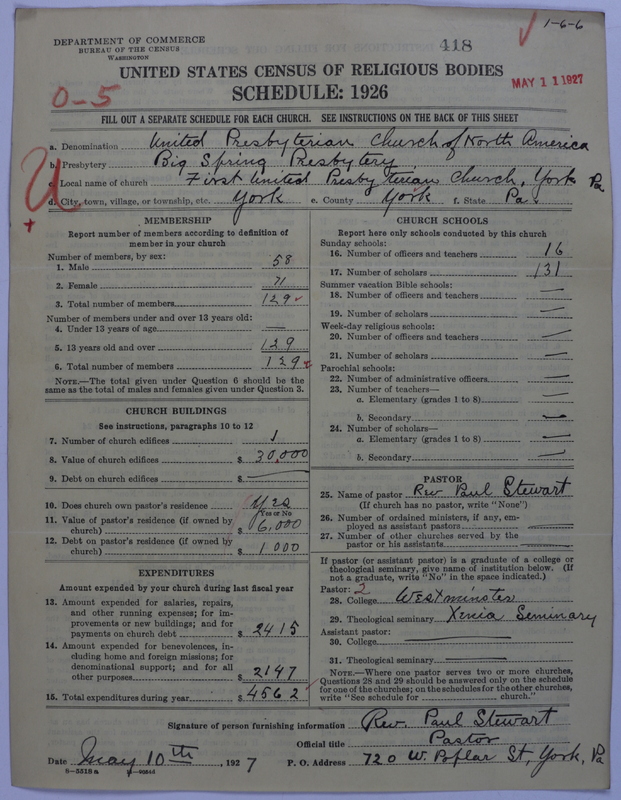 1-6-6
DEPARTMENT OF COMMERCE
BUREAU OF THE CENSUS
WASHINGTON
418
UNITED STATES CENSUS OF RELIGIOUS BODIES
MAY 11 1927
SCHEDULE: 1926
0-5
FILL OUT A SEPARATE SCHEDULE FOR EACH CHURCH. SEE INSTRUCTIONS ON THE BACK OF THIS SHEET
a. Denomination United Presbyterian Church of North America
b. Presbytery Big Spring Presbytery
c. Local name of church First United Presbyterian Church, York Pa
d. City, town, village, or township, etc. York e. County York f. State Pa.
U
MEMBERSHIP
Report number of members according to definition of
member in your church
Number of members, by sex:
1. Male 58
2. Female 71
3. Total number of members 129
Number of members under and over 13 years old:
4. Under 13 years of age —
5. 13 years old and over 129
6. Total number of members 129
NOTE.—The total given under Question 6 should be the
same as the total of males and females given under Question 3.
CHURCH BUILDINGS
See instructions, paragraphs 10 to 12
7. Number of church edifices 1
8. Value of church edifices $ 30,000
9. Debt on church edifices $ —
10. Does church own pastor's residence Yes
Yes or No
11. Value of pastor's residence (if owned by
church) $ 6,000
12. Debt on pastor's residence (if owned by
church) $ 1000
EXPENDITURES
Amount expended by your church during last fiscal year
13. Amount expended for salaries, repairs,
and other running expenses; for im-
provements or new buildings; and for
payments on church debt $ 2415
14. Amount expended for benevolences, in-
cluding home and foreign missions; for
denominational support; and for all
other purposes $ 2147
15. Total expenditures during year $ 4562
CHURCH SCHOOLS
Report here only schools conducted by this church
Sunday schools:
16. Number of officers and teachers 16
17. Number of scholars 131
Summer vacation Bible schools:
18. Number of officers and teachers —
19. Number of scholars —
Week-day religious schools:
20. Number of officers and teachers —
21. Number of scholars —
Parochial schools:
22. Number of administrative officers —
23. Number of teachers—
a. Elementary (grades 1 to 8) —
b. Secondary —
24. Number of scholars—
a. Elementary (grades 1 to 8) —
b. Secondary —
PASTOR
25. Name of pastor Rev Paul Stewart
(If church has no pastor, write "None")
26. Number of ordained ministers, if any, em-
ployed as assistant pastors —
27. Number of other churches served by the
pastor or his assistants —
If pastor (or assistant pastor) is a graduate of a college or
theological seminary, give name of institution below. (If
not a graduate, write "No" in the space indicated.)
Pastor: 2
28. College Westminster
29. Theological seminary Xenia Seminary
Assistant pastor:
30. College —
31. Theological seminary —
NOTE.—Where one pastor serves two or more churches,
Questions 28 and 29 should be answered only on the schedule
for one of the churches; on the schedules for the other churches,
write "See schedule for church."
Signature of person furnishing information Rev. Paul Stewart
Official title Pastor
Date May 10th, 1927 P. O. Address 720 W. Poplar St, York, Pa
8-5518a